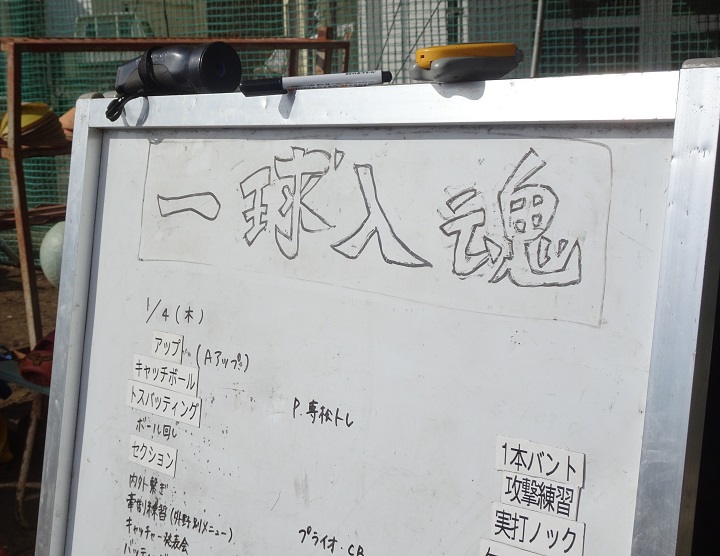 一球入魂
1/4(木)
アップ (Aアップ)
キャッチボール
トスバッティング
P.専松トレ
ボール回し
セクション
内外繋ぎ
牽制練習(外野別メニュー)
キャッチャー発表会
プライオ・CB
1本バント
攻撃練習
実打ノック